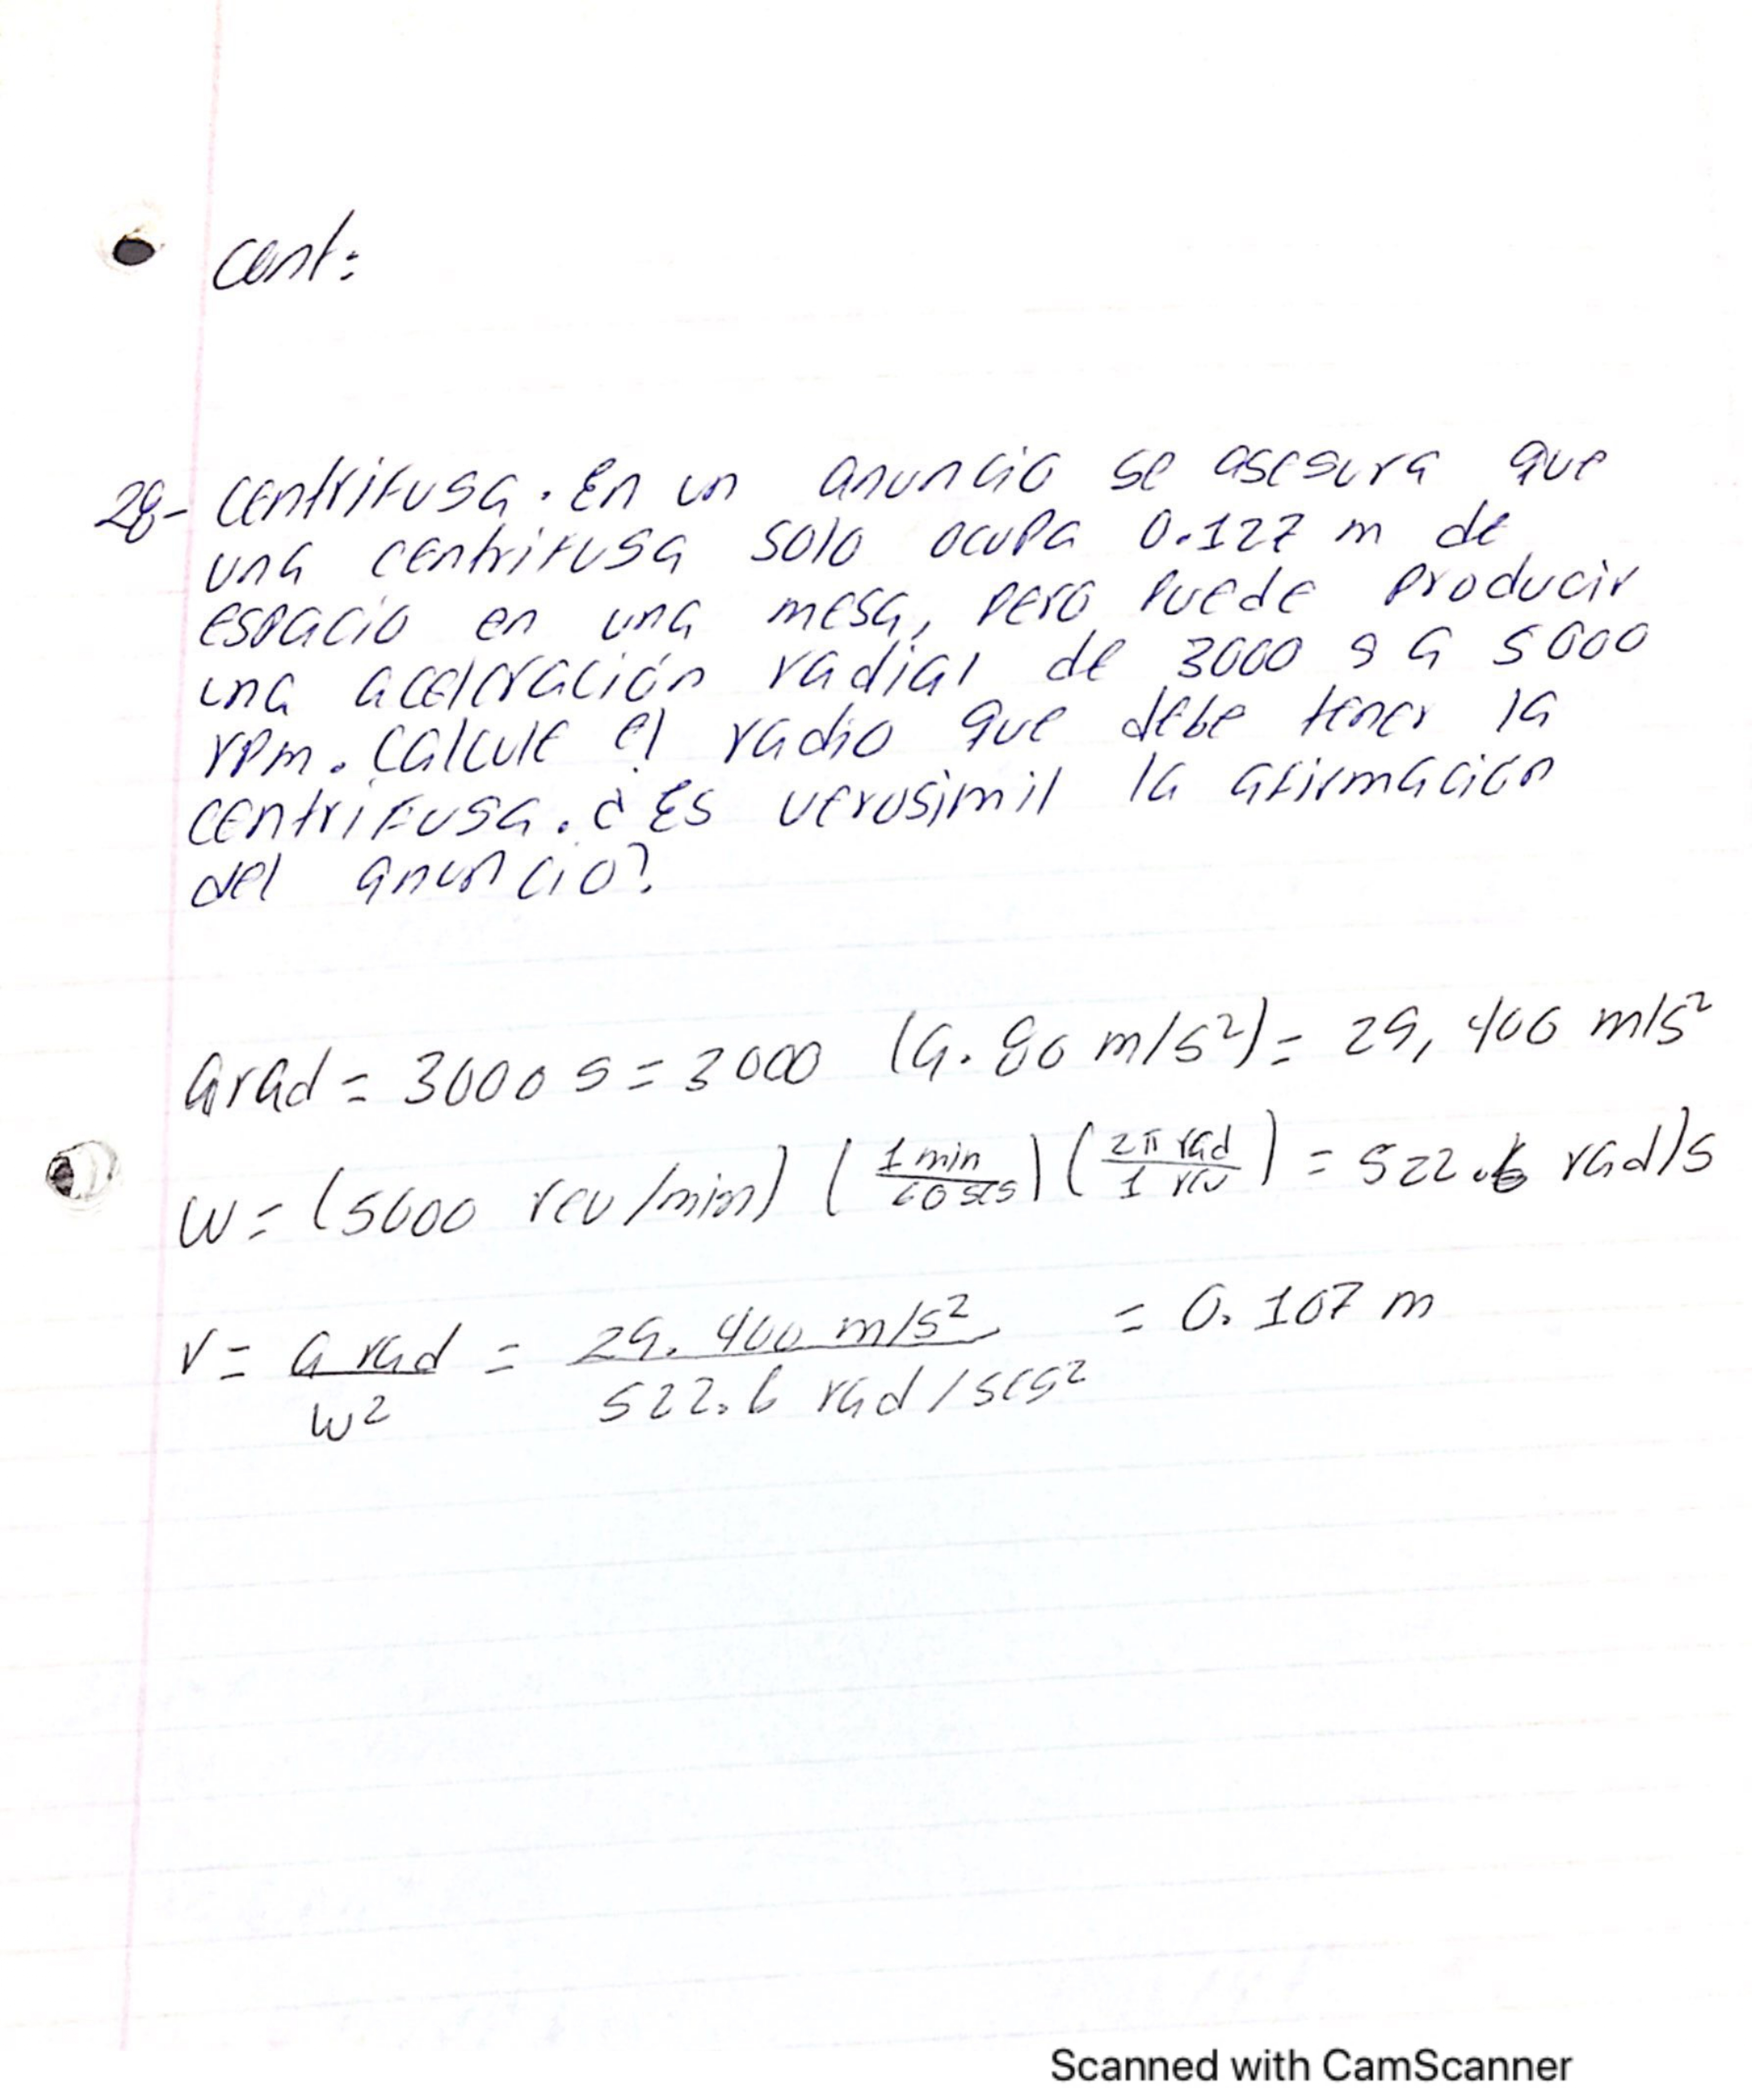 cont:
28- Centrifuga. En un anuncio se asegura que
una centrifuga solo ocupa 0.127 m de
espacio en una mesa, pero puede producir
una aceleración radial de 3000 g a 5000
rpm. Calcule el radio que debe tener la
centrifuga. ¿Es verosimil la afirmación
del anuncio?
arad = 3000 g = 3000 (9.80 m/s²) = 29,400 m/s²
W = (5000 rev/min) (1 min / 60 seg) (2π rad / 1 rev) = 522.6 rad/s
r = a rad / w² = 29.400 m/s² / 522.6 rad/seg² = 0.107 m
Scanned with CamScanner